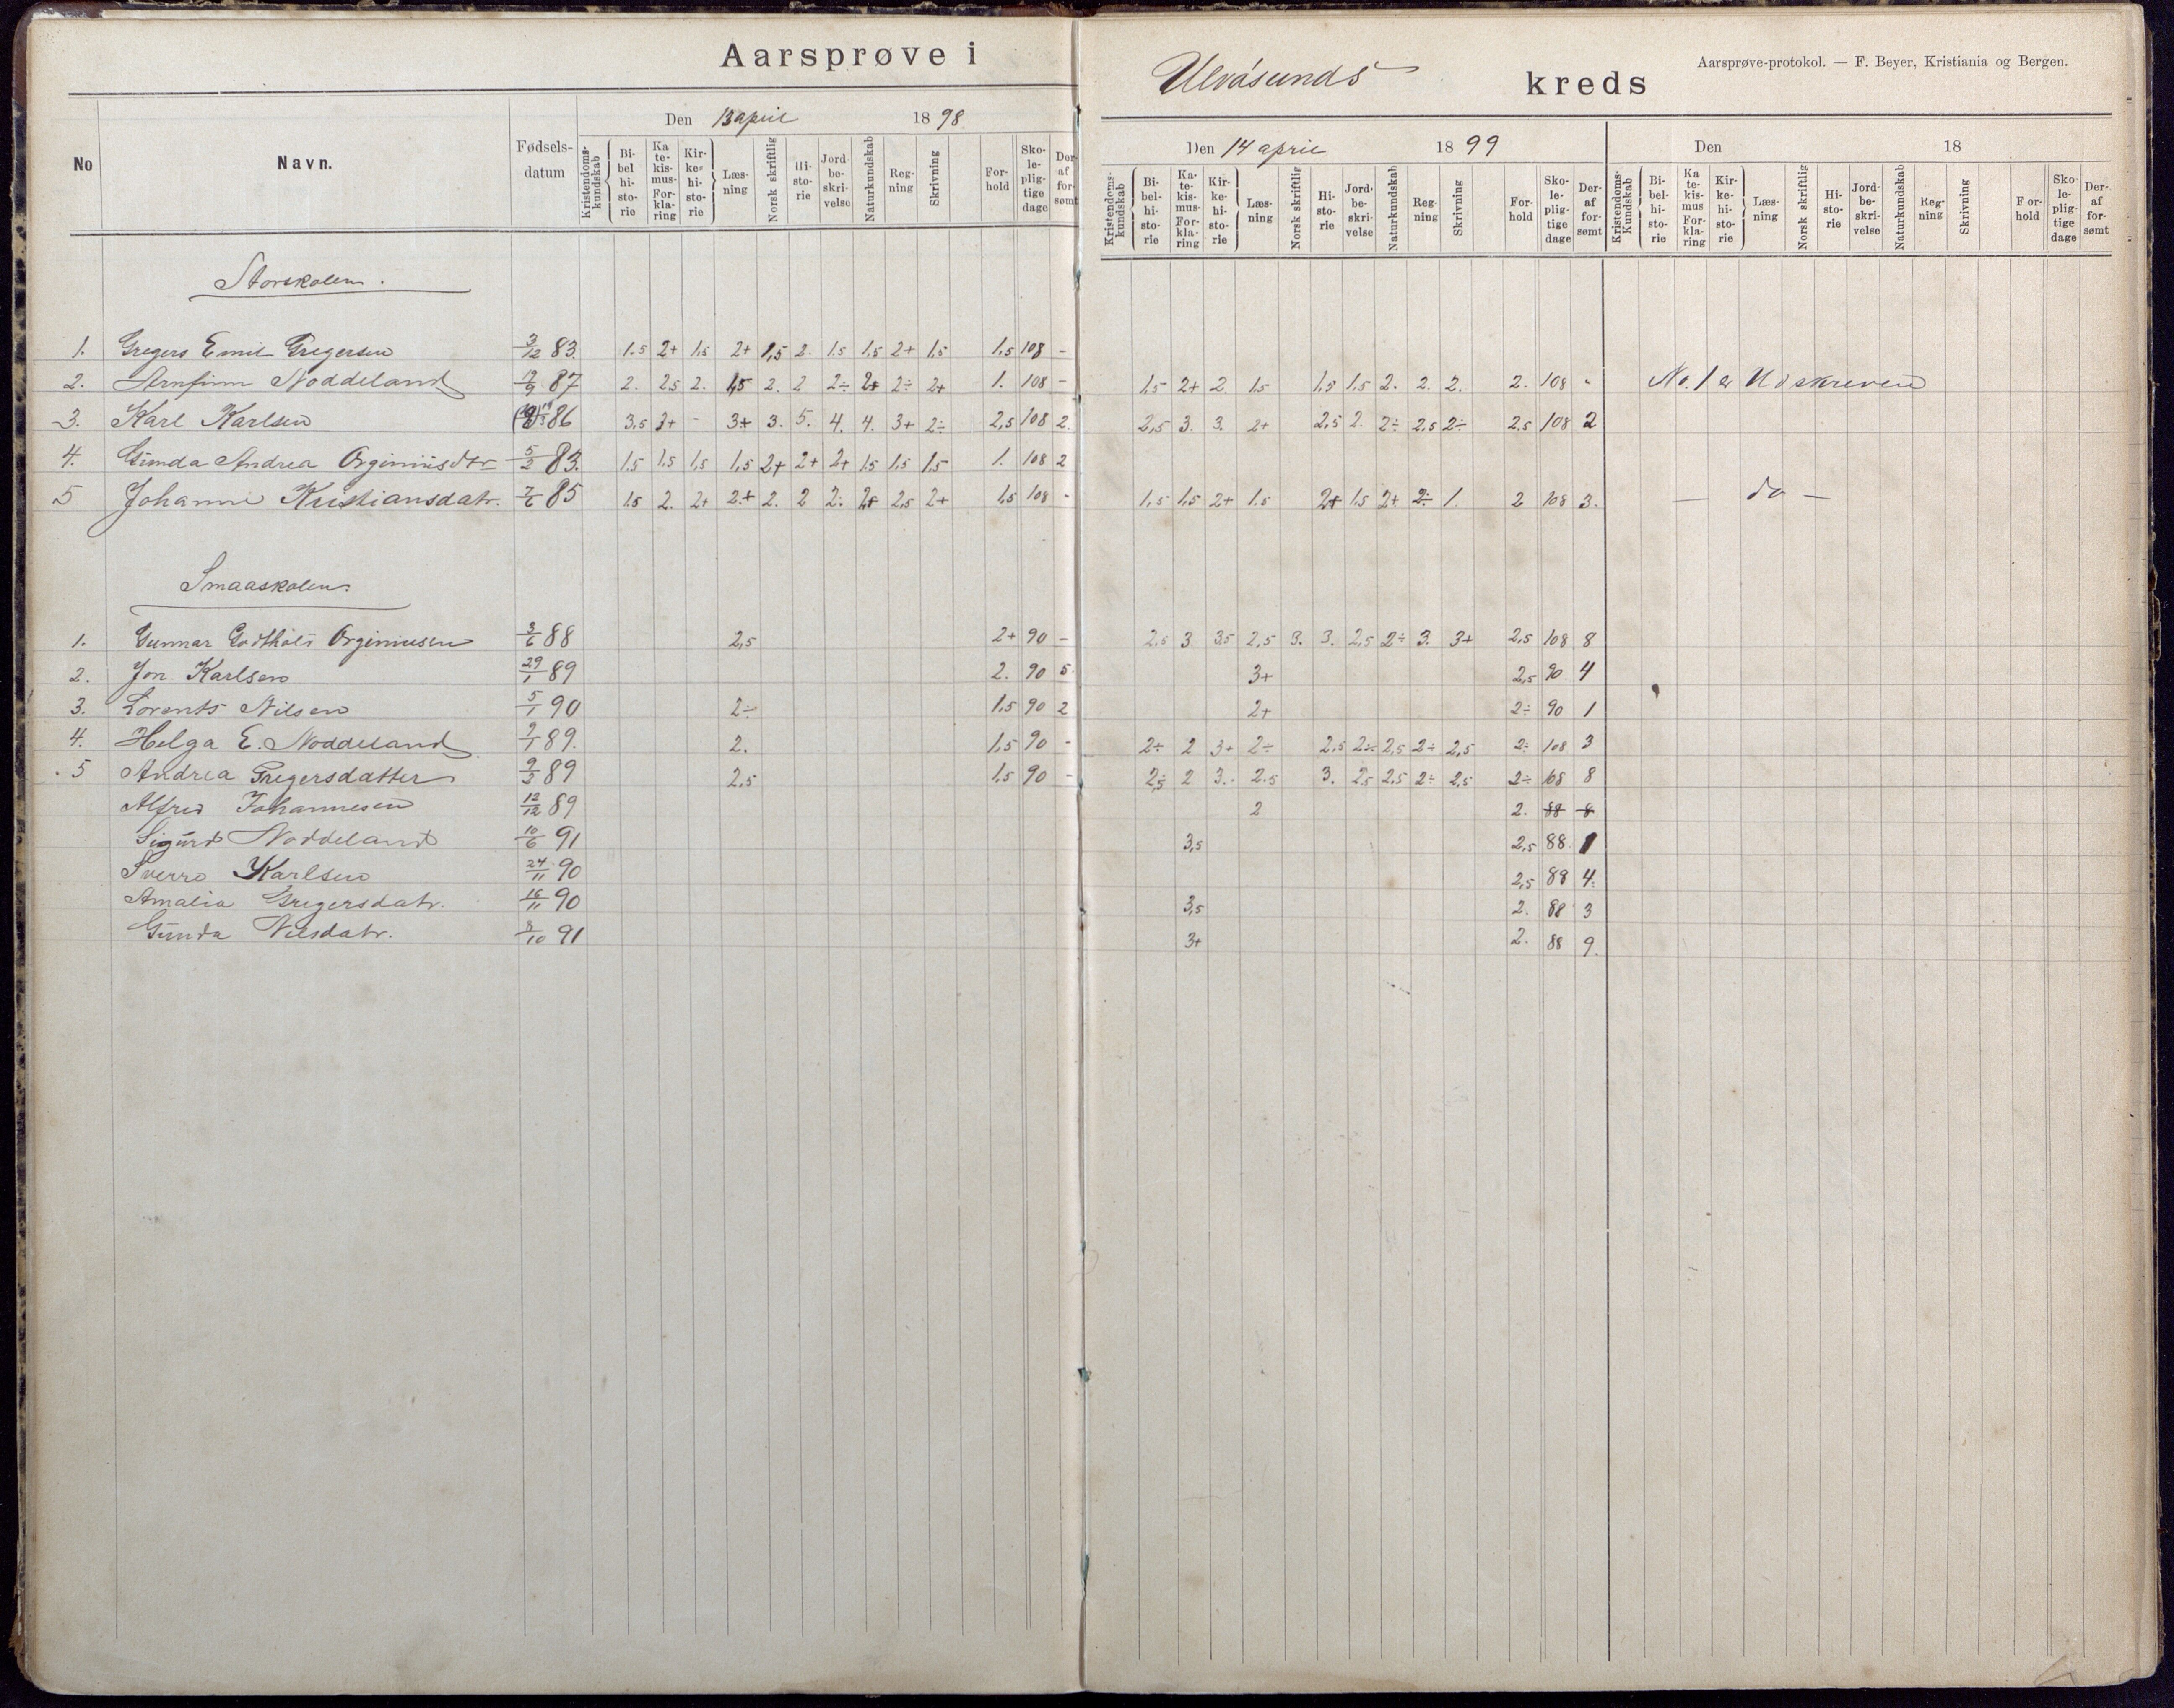 Aarsprøve i
Ulvåsunds kreds
Aarsprøve-protokol. — F. Beyer, Kristiania og Bergen.
No Navn. Fødsels-datum
Den 13 april 1898
Kristendoms-kundskab Bibelhistorie Katekismus-Forklaring Kirkehistorie Læsning Norsk skriftlig Historie Jordbeskrivelse Naturkundskab Regning Skrivning Forhold Skolepligtige dage Deraf forsømt
Den 14 april 1899
Kristendoms-kundskab Bibel-historie Katekismus-Forklaring Kirke-historie Læsning Norsk skriftlig Historie Jordbeskrivelse Naturkundskab Regning Skrivning Forhold Skolepligtige dage Deraf forsømt
Den 18
Kristendoms-Kundskab Bibel-historie Katekismus Forklaring Kirke-historie Læsning Norsk skriftlig Historie Jordbeskrivelse Naturkundskab Regning Skrivning Forhold Skolepligtige dage Deraf forsømt
Storskolen.
1. Gregers Emil Gregersen 3/12 83. 1.5 2+ 1,5 2+ 1,5 2. 1.5 1,5 2+ 1.5 1.5 108 -
2. Arnfinn Noddeland 87 2. 2.5 2. 1,5 2. 2 2÷ 2+ 2÷ 2+ 1. 108 - 1.5 2+ 2 1.5 1.5 1.5 2. 2. 2. 2. 108 " No. 1 er Udskreven
3. Karl Karlsen 86 3,5 3+ - 3+ 3. 5. 4. 4. 3+ 2÷ 2,5 108 2. 2,5 3. 3. 2+ 2,5 2. 2÷ 2.5 2÷ 2.5 108 2
4. Gunda Andrea Orginiusdtr 5/2 83. 1.5 1.5 1,5 1,5 2+ 2+ 2+ 1.5 1.5 1.5 1. 108 2
5 Johanne Kristiansdatr. 7/6 85 1.5 2. 2+ 2+ 2. 2 2. 2+ 2,5 2+ 1.5 108 - 1,5 1,5 2+ 1.5 2+ 1.5 2+ 2÷ 1. 2 108 3. — do —
Smaaskolen.
1. Gunnar Godthold Orginiusen 3/6 88 2,5 2+ 90 - 2.5 3 3.5 2,5 3. 3. 2,5 2÷ 3. 3+ 2,5 108 8
2. Jon Karlsen 29/1 89 2. 90 5. 3+ 2,5 90 4
3. Lorents Nilsen 5/1 90 2÷ 1.5 90 2 2+ 2÷ 90 1
4. Helga E. Noddeland 89. 2. 1,5 90 - 2÷ 2 3+ 2÷ 2.5 2÷ 2,5 2÷ 2,5 2÷ 108 3
5 Andrea Gregersdatter 89 2,5 1.5 90 - 2,5 2 3. 2.5 3. 2,5 2.5 2÷ 2,5 2÷ 108 8
Alfred Johannesen 12/12 89 2 2. 88 8
Sigurd Noddeland 10/6 91 3,5 2,5 88 1
Sverre Karlsen 24/11 90 2,5 88 4.
Amalia Gregersdatr. 16/11 90 3,5 2. 88 3
Gunda Nilsdatr. 91 3+ 2. 88 9.